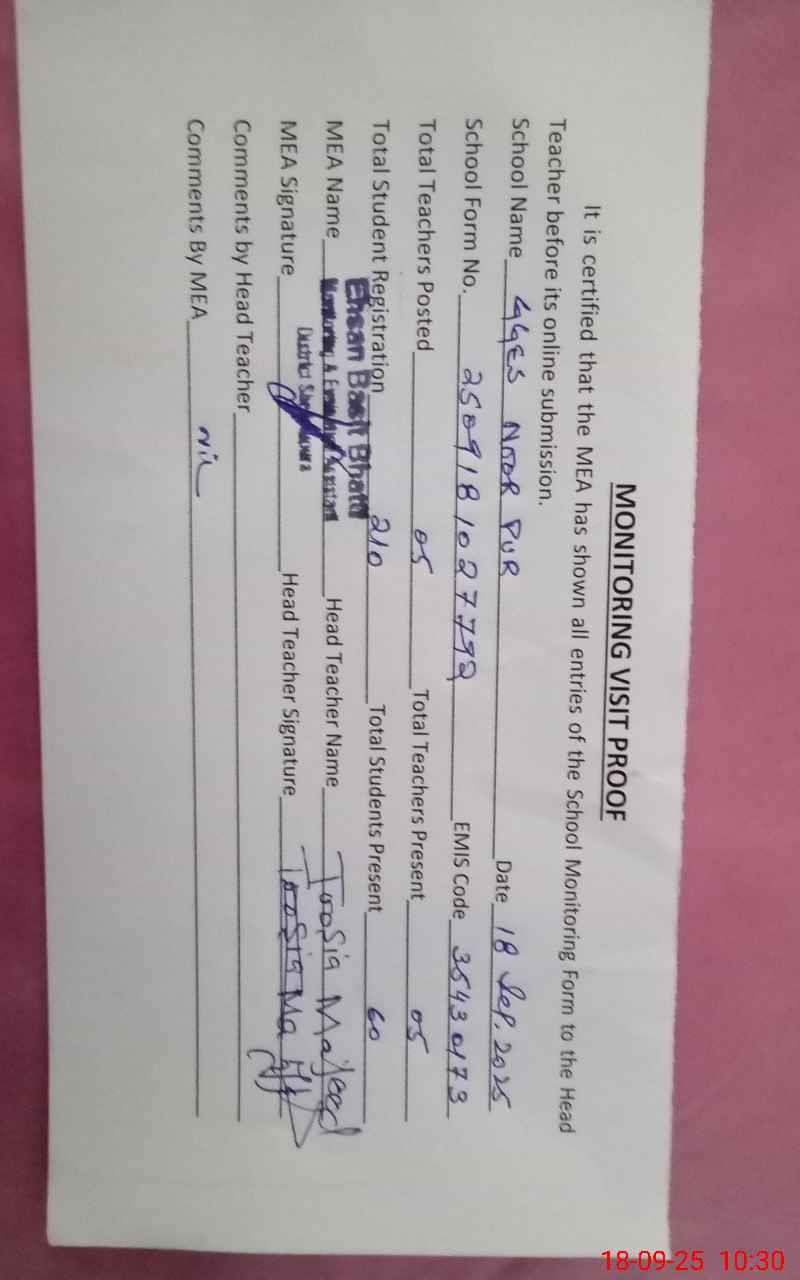 MONITORING VISIT PROOF
It is certified that the MEA has shown all entries of the School Monitoring Form to the Head
Teacher before its online submission.
School Name GGES NOOR PUR Date 18 Sep. 2025
School Form No. 2509181027792 EMIS Code 35430173
Total Teachers Posted 05 Total Teachers Present 05
Total Student Registration 210 Total Students Present 60
Ehsan Basit Bhatti
MEA Name Monitoring & Evaluation Assistant Head Teacher Name Toosia Majeed
District
MEA Signature Head Teacher Signature Toosia Ma
Comments by Head Teacher
Comments By MEA Nil
18-09-25 10:30